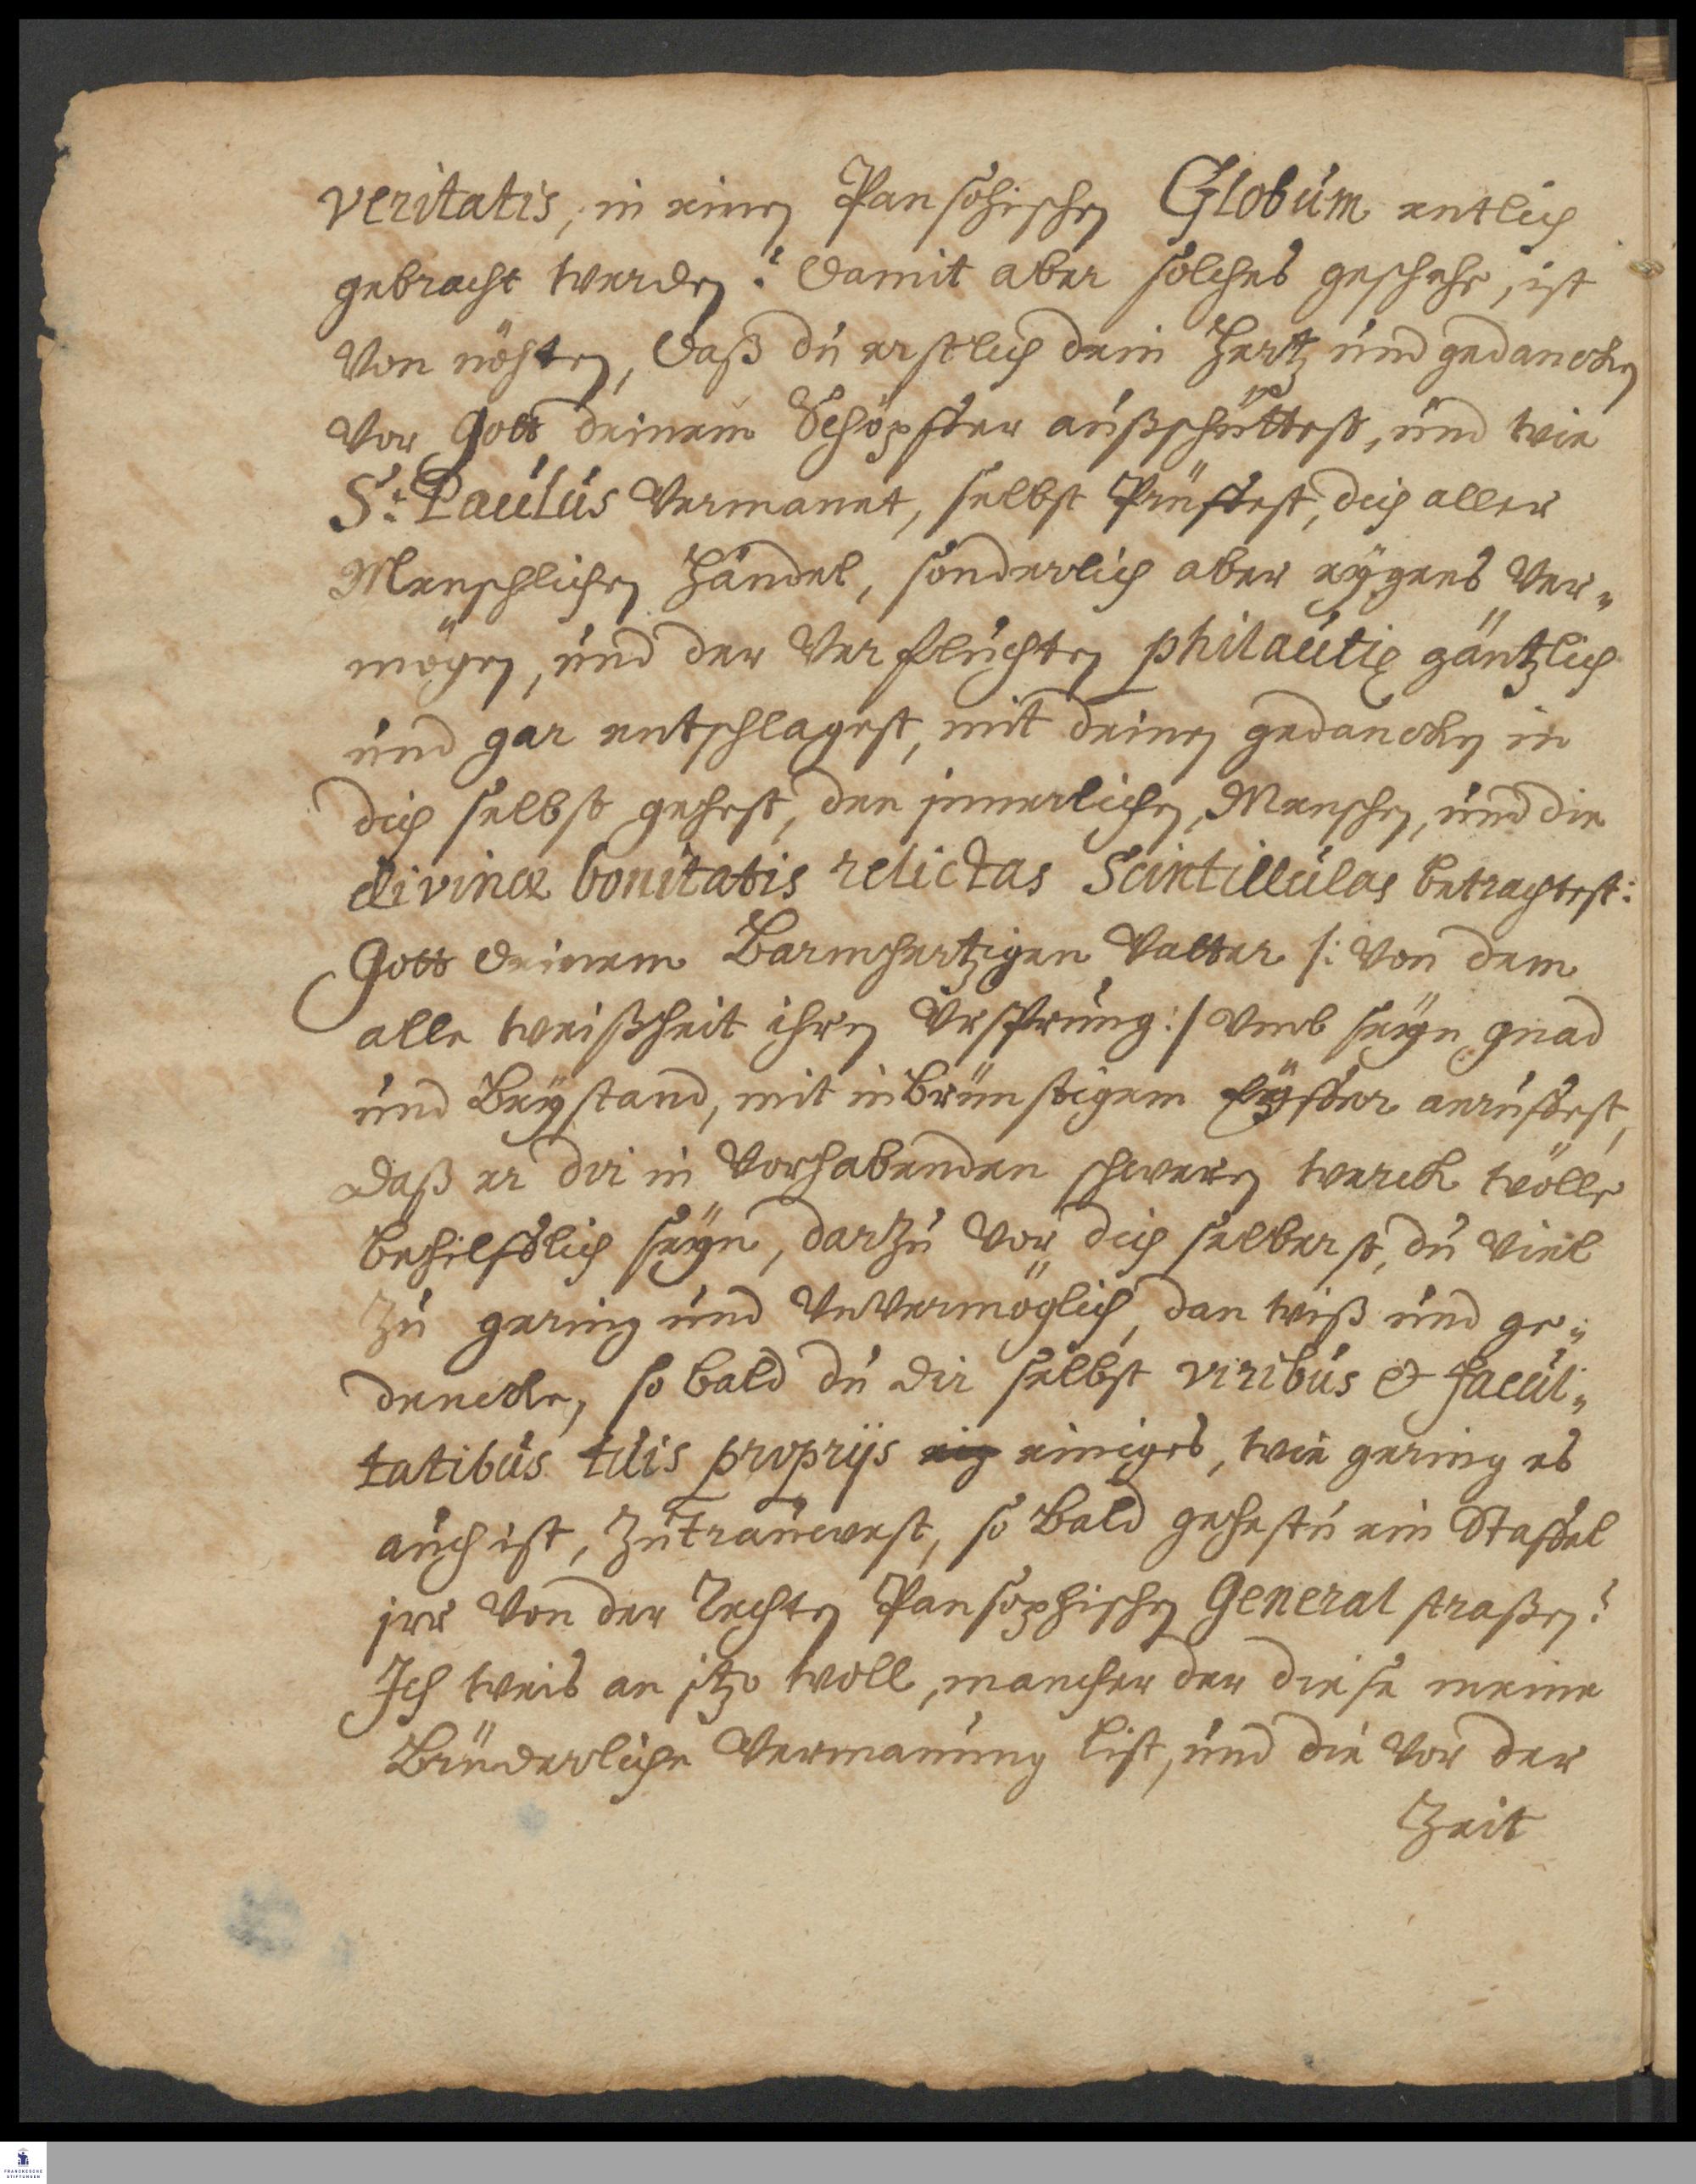 veritatis, in einen Pansohischen Globum entlich
gebracht werden? Damit aber solches geschehe, ist
Von nöhten, Daß du erstlich dein Hertz und gedancken
Vor Gott deinem Schöpffer außschüttest, und wie
S: Paulus Vermanet, selbst Prüffest, dich aller
Menschlichen Händel, sonderlich aber eÿgens Ver„
mögen, und der Verfluchten philautiæ gäntzlich
und gar entschlagest, mit deinen gedancken in
dich selbst gehest, den innerlichen Menschen, und die
divinæ bonitatis relictas Scintillulas betrachtest:
Gott deinem Barmhertzigen Vatter /: Von dem
alle weißheit ihren Vrsprung :/ Vmb seÿn gnad
und Beÿstand, mit inbrünstigem Eÿffer anruffest,
Daß er dir in Vorhabenden schweren werck wölle
behilfflich seÿn, darzu Vor dich selberst, du Viel
Zu gering und VnVermöglich, dan wiß und ge„
dencke, so bald du dir selbst viribus & facul„
tatibus tuis proprijs eig einiges, wie gering es
auch ist, Zutrauwest, so bald gehestu ein Staffel
jrr Von der Rechten Pansophischen General straßen?
Ich weis an jtzo woll, mancher der diese meine
Brüderliche Vermanung list, und die Vor der
Zeit
FRANCKESCHE
STIFTUNGEN